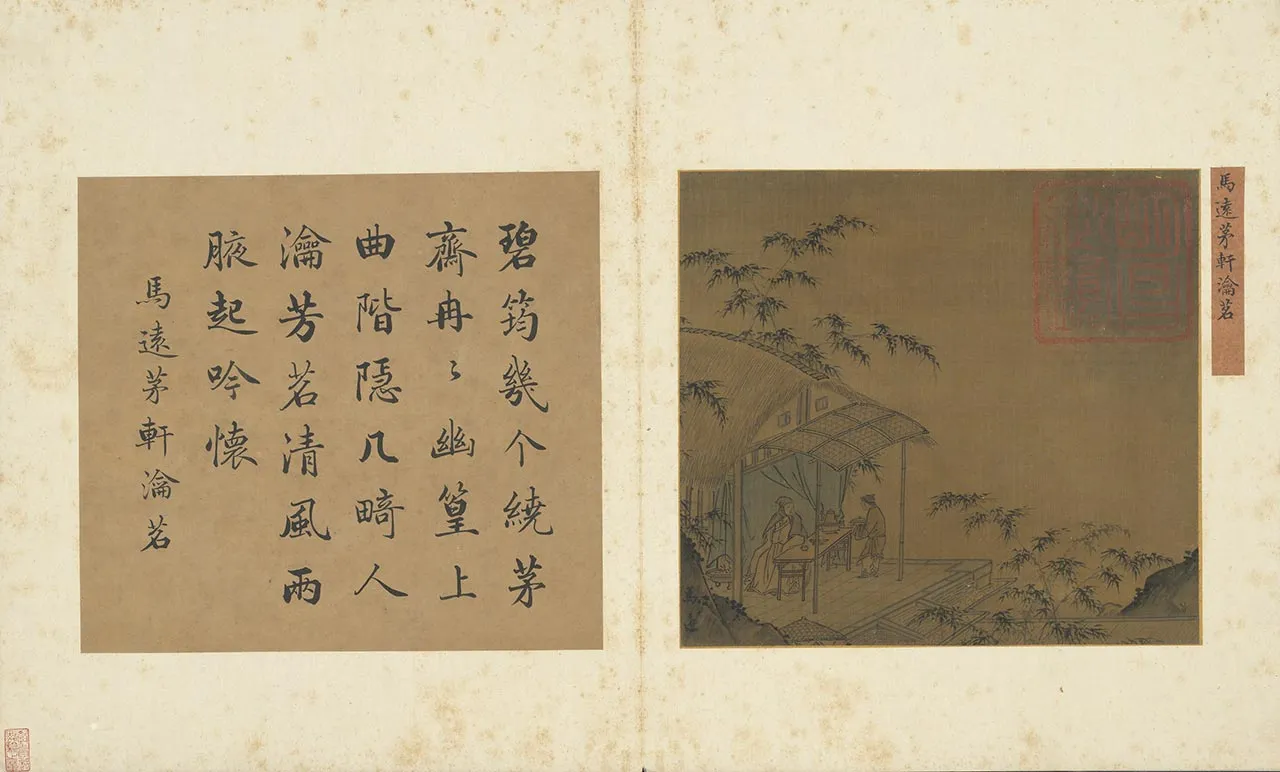 馬遠茅軒瀹茗
碧筠幾个繞茅
齋冉〻幽篁上
曲階隱几畸人
瀹芳茗清風兩
腋起吟懷
馬遠茅軒瀹茗